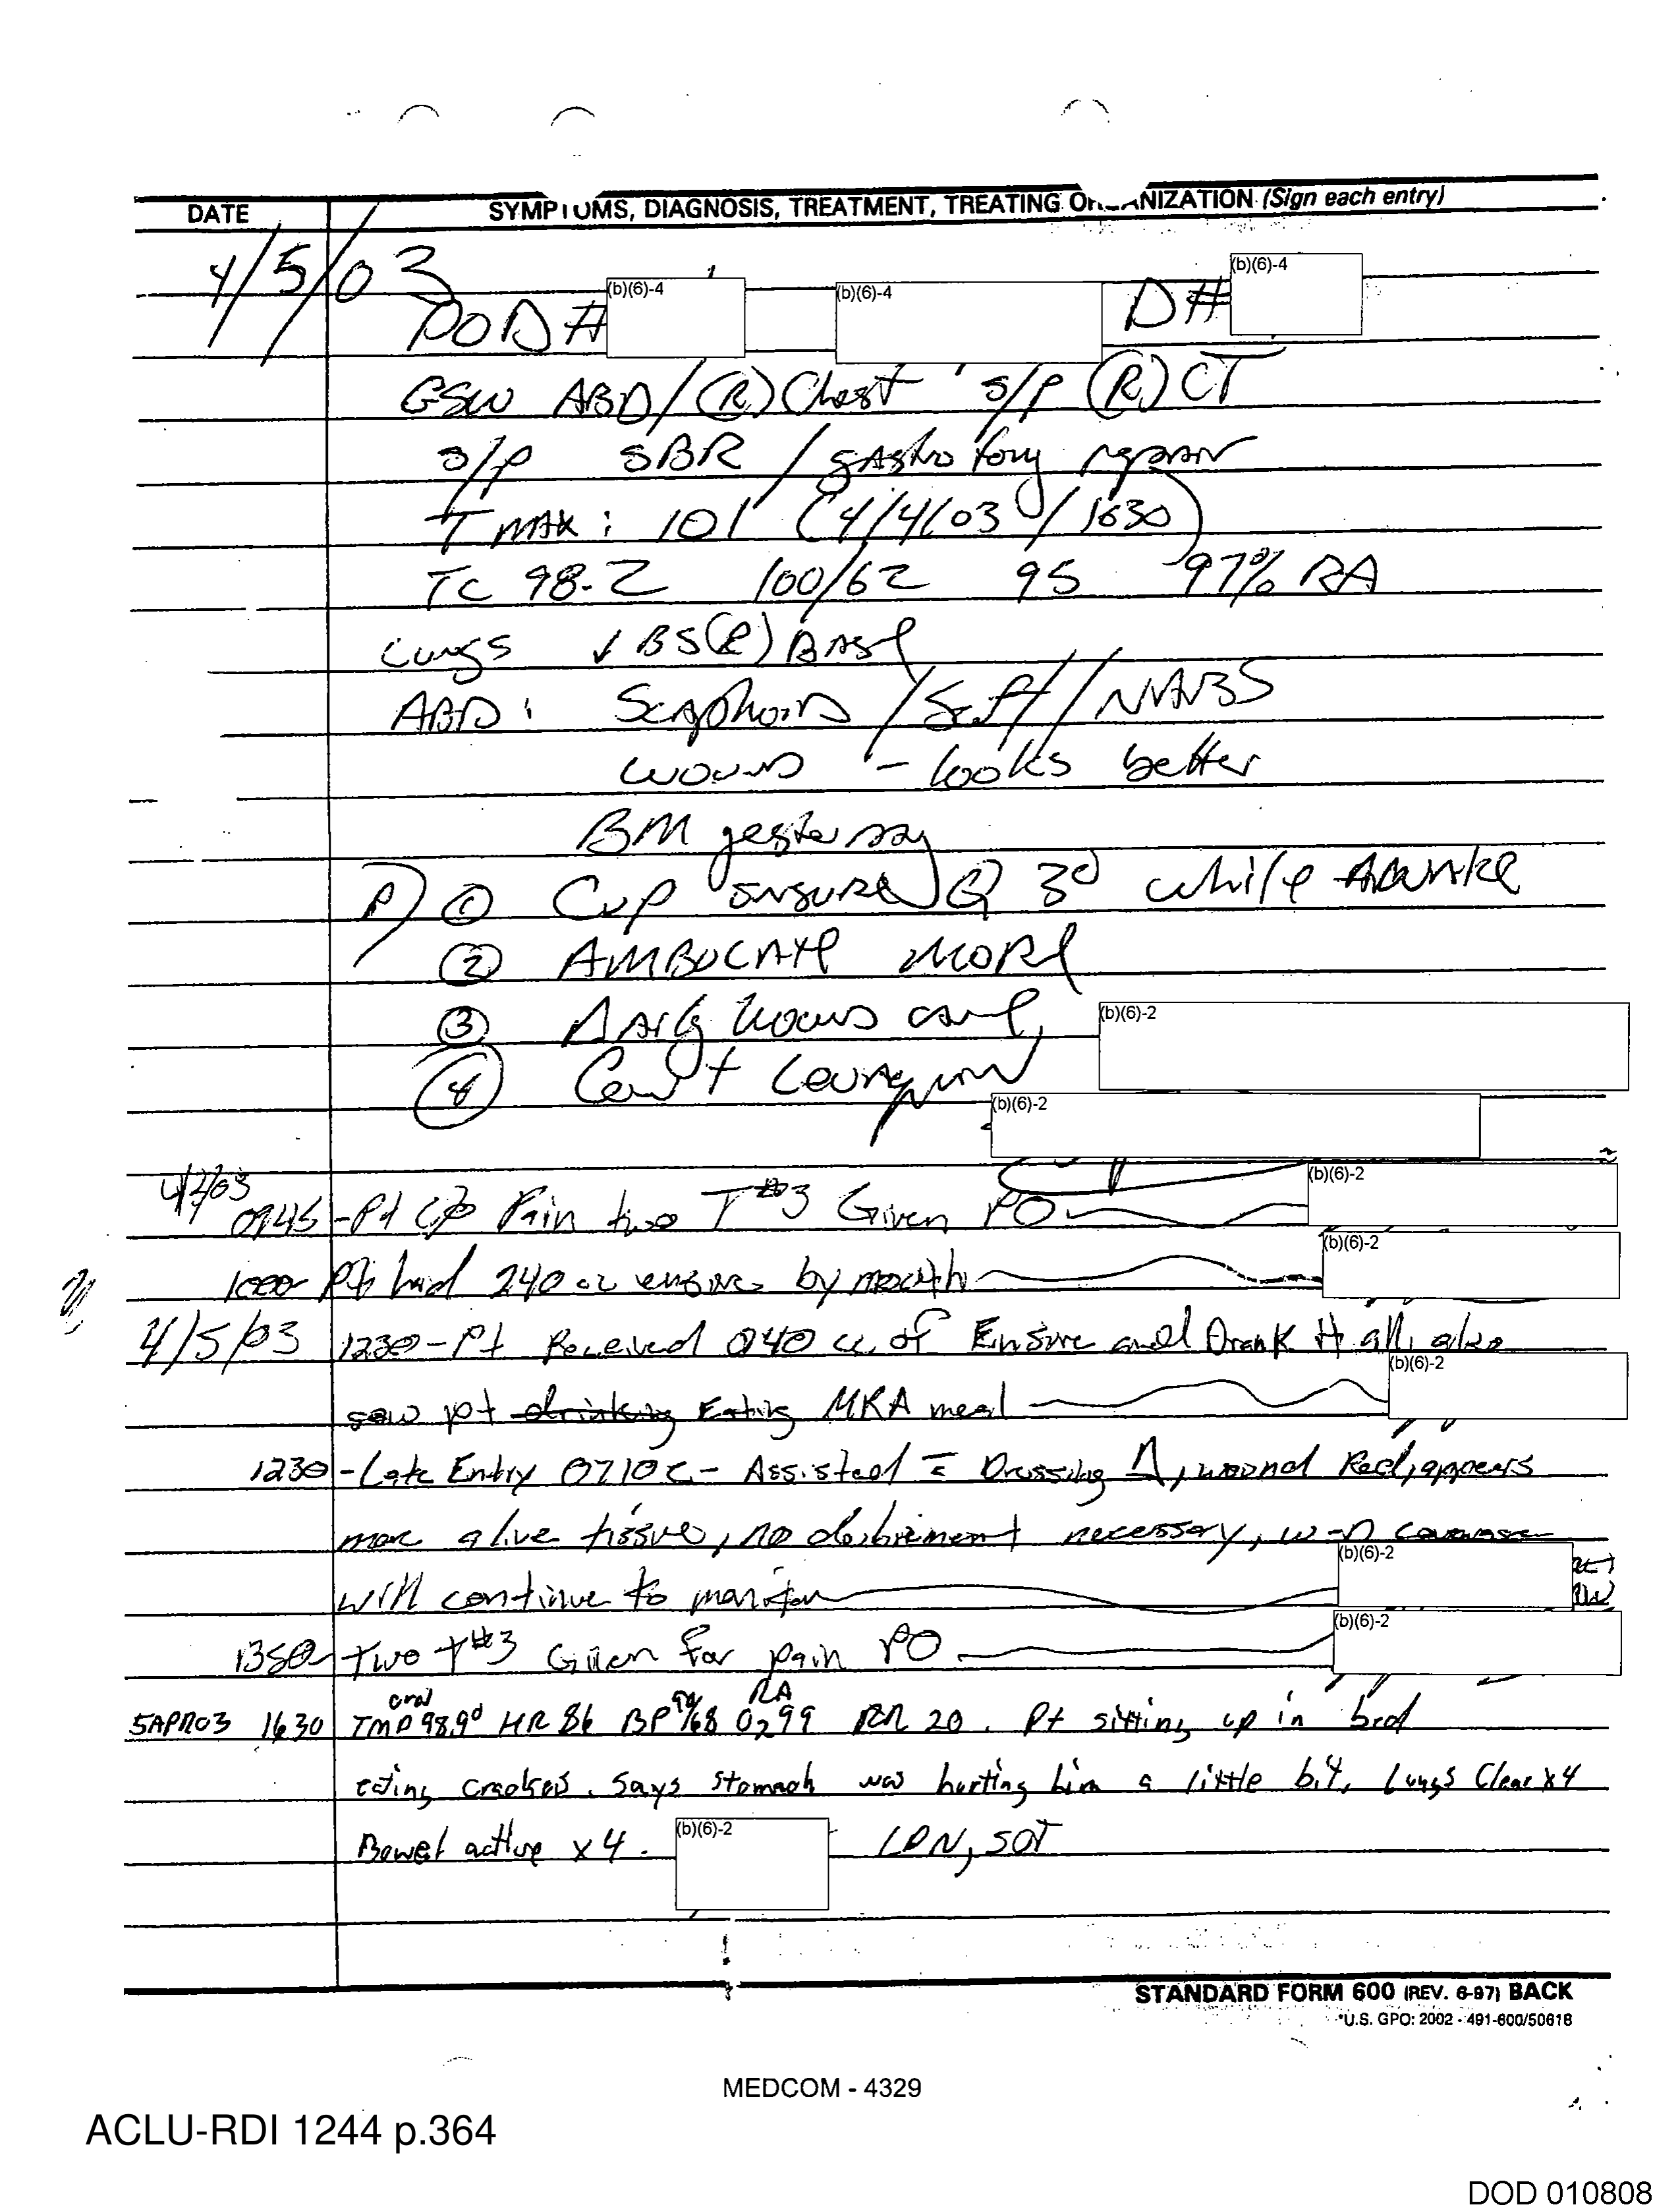 DATE SYMPTOMS, DIAGNOSIS, TREATMENT, TREATING ORGANIZATION (Sign each entry)
4/5/03
POD # (b)(6)-4 (b)(6)-4 D# (b)(6)-4
GSW ABD/(R) Chest s/p (R) CT
s/p SBR /
T MAX: 101 (4/4/03 / 1630)
TC 98.2 100/62 95 97% RA
Lungs ↓ BS (R) BASE
ABD: Scaphoid / Soft / NABS
wound - looks better
BM yesterday
P) ① Cup ensure Q 3° while Awake
② AMBULATE MORE
③ Daily wound care (b)(6)-2
④ Con't
(b)(6)-2
0945 - Pt c/o Pain two T#3 Given PO (b)(6)-2
1000 Pt had 240 cc ensure by mouth (b)(6)-2
4/5/03 1230 - Pt Received 040 cc of Ensure and Drank it all, also
saw pt drinking Eating MRA meal (b)(6)-2
1230 - Late Entry 0710 - Assisted c̄ Dressing Δ, wound Red, appears
more alive tissue, no debriement necessary,
will continue to monitor (b)(6)-2
1350 - Two T#3 Given for pain PO (b)(6)-2
5APR03 1630 TMP 98.9° oral HR 86 BP 98/68 O299 RA RR 20. Pt sitting up in bed
eating crackers. Says stomach was hurting him a little bit, Lungs Clear x4
Bowel active x 4. (b)(6)-2 LPN, SGT
STANDARD FORM 600 (REV. 6-97) BACK
*U.S. GPO: 2002 - 491-600/50618
MEDCOM - 4329
ACLU-RDI 1244 p.364
DOD 010808